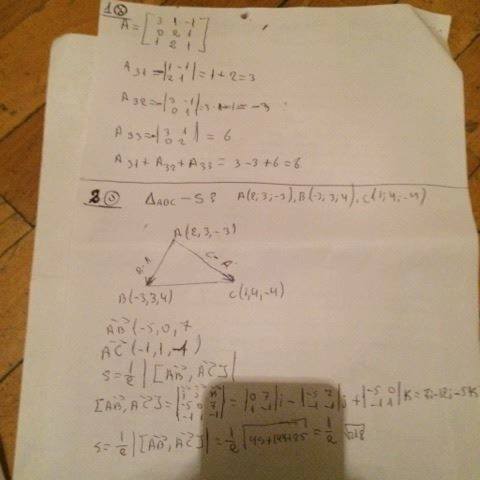 1
A = [ 3 1 -1
0 2 1
1 2 1 ]
A31 = |1 -1
2 1| = 1+2=3
A32 = -|3 -1
0 1| = -3
A33 = |3 1
0 2| = 6
A31 + A32 + A33 = 3-3+6=6
2 ΔABC - S? A(2,3,-3), B(-3,3,4), C(1,4,-4)
A(2,3,-3)
B(-3,3,4) C(1,4,-4)
AB(-5,0,7
AC(-1,1,-1)
S = 1/2 |[AB, AC]|
[AB, AC] = |i j k
-5 0 7
-1 1 -1| = |0 7
1 -1| i - |-5 7
-1 -1| j + |-5 0
-1 1| k = -7i-12j-5k
S = 1/2 |[AB, AC]| = 1/2 √49+144+25 = 1/2 √218